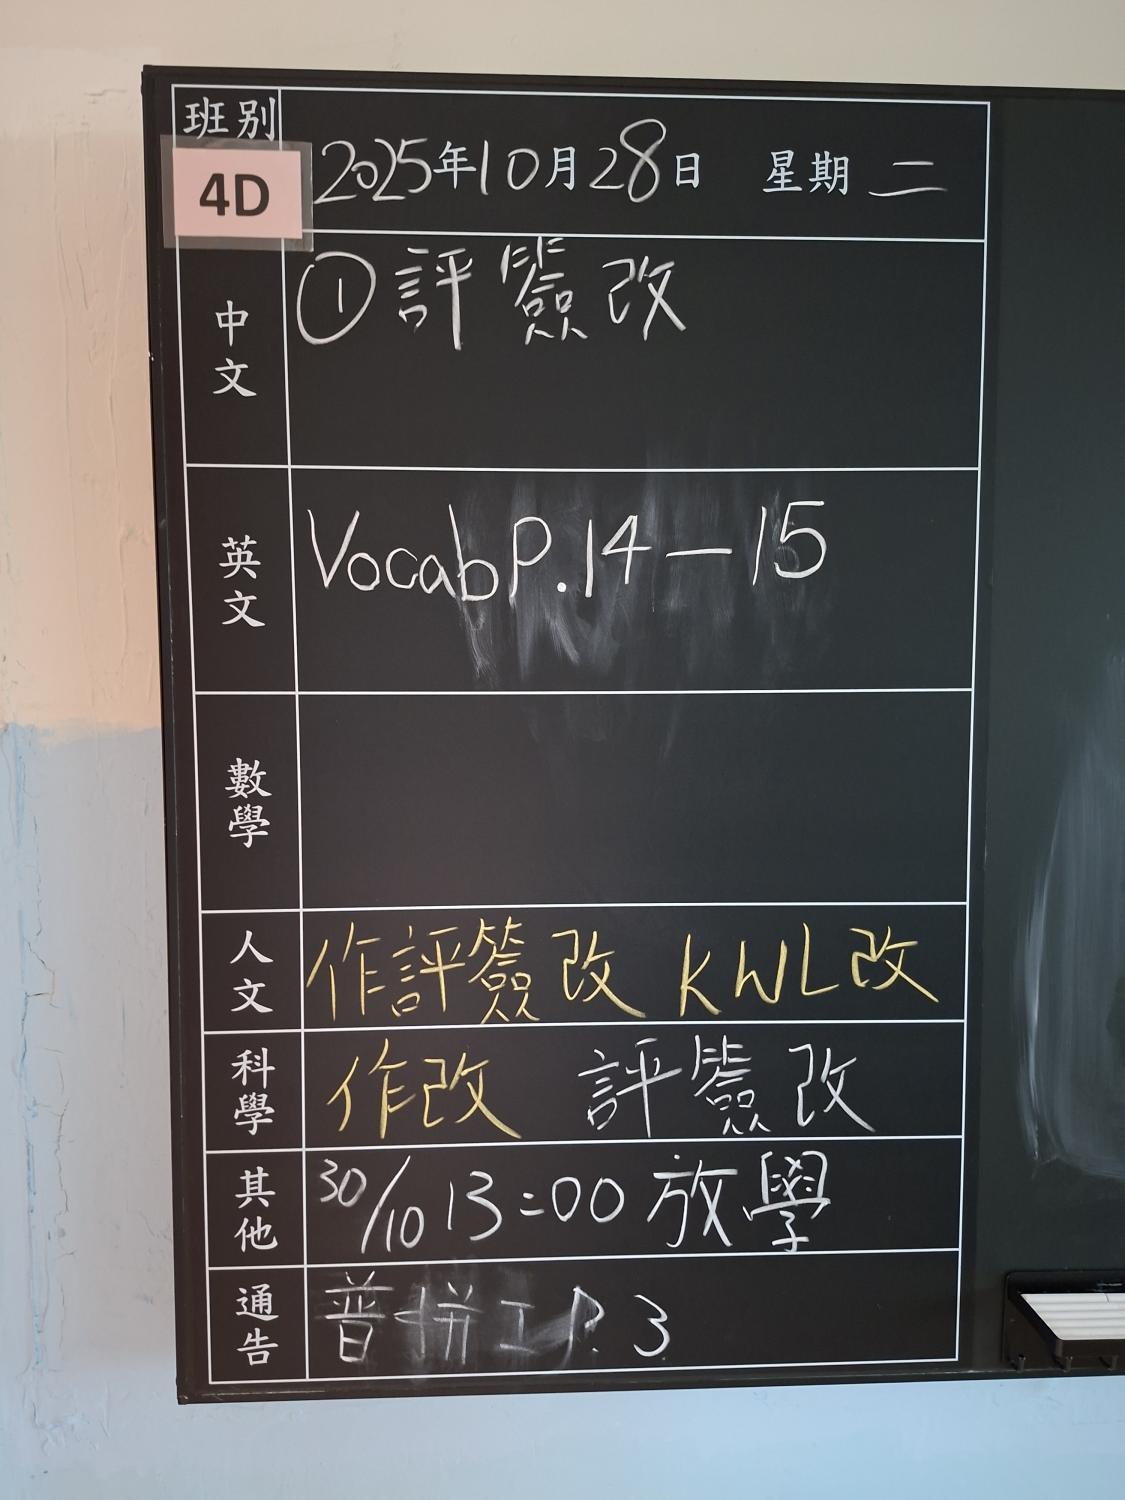 班別
4D
2025年10月28日 星期二
中文
①評簽改
英文
Vocab P.14—15
數學
人文
作評簽改 KWL改
科學
作改 評簽改
其他
30/10 13:00 放學
通告
普拼工P.3